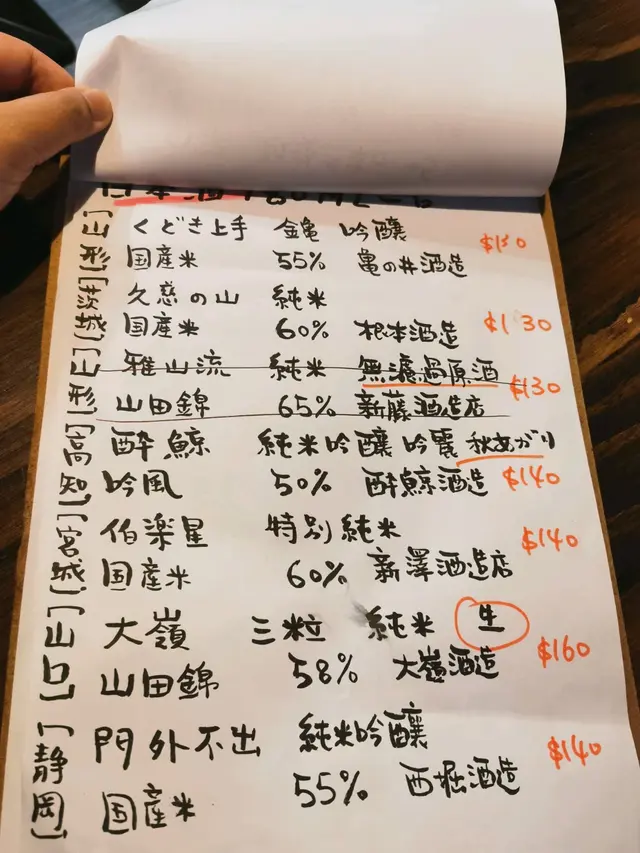 [山形]
くどき上手 金亀 吟醸
$150
国産米 55% 亀の井酒造
[茨城]
久慈の山 純米
国産米 60% 根本酒造 $130
[山形]
雅山流 純米 無濾過原酒
$130
山田錦 65% 新藤酒造店
[高知]
酔鯨 純米吟醸 吟麗 秋あがり
吟風 50% 酔鯨酒造 $140
[宮城]
伯楽星 特別純米
$140
国産米 60% 新澤酒造店
[山口]
大嶺 三粒 純米 生
$160
山田錦 58% 大嶺酒造
[静岡]
門外不出 純米吟醸
$140
国産米 55% 西堀酒造